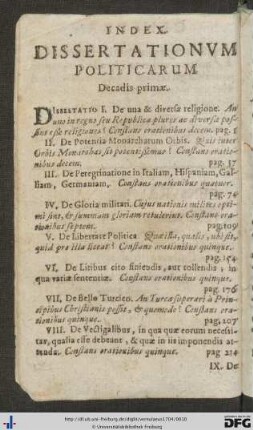 INDEX
DISSERTATIONVM
POLITICARUM
Decadis primæ.
DISSERTATIO I. De una & diversa religione. An
uno in regno seu Republica plures ac diversæ pos-
sint esse religiones? Constans orationibus decem. pag. 1
II. De Potentia Monarcharum Orbis. Quis inter
Orbis Monarchas sit potentissimus? Constans oratio-
nibus decem. pag. 37
III. De Peregrinatione in Italiam, Hispaniam, Gal-
liam, Germaniam. Constans orationibus quatuor.
pag. 74
IV. De Gloria militari. Cujus nationis milites opti-
mi sint, & summam gloriam retulerint. Constans ora-
tionibus septem. pag. 109
V. De Libertate Politica. Quæ sit, qualis, ubi sit,
quid pro illa liceat? Constans orationibus quinque.
pag. 154
VI. De Litibus cito finiendis, aut tollendis, in
qua variæ sententiæ. Constans orationibus quinque.
pag. 176
VII. De Bello Turcico. An Turca superari à Prin-
cipibus Christianis possit, & quomodo? Constans ora-
tionibus quinque. pag. 107
VIII. De Vectigalibus, in qua quæ eorum necessi-
tas, qualia esse debeant, & quæ in iis imponendis at-
tenda. Constans orationibus quinque. pag 224
IX. De
http://dl.ub.uni-freiburg.de/diglit/
© Universitätsbibliothek Freiburg
gefördert durch die
DFG